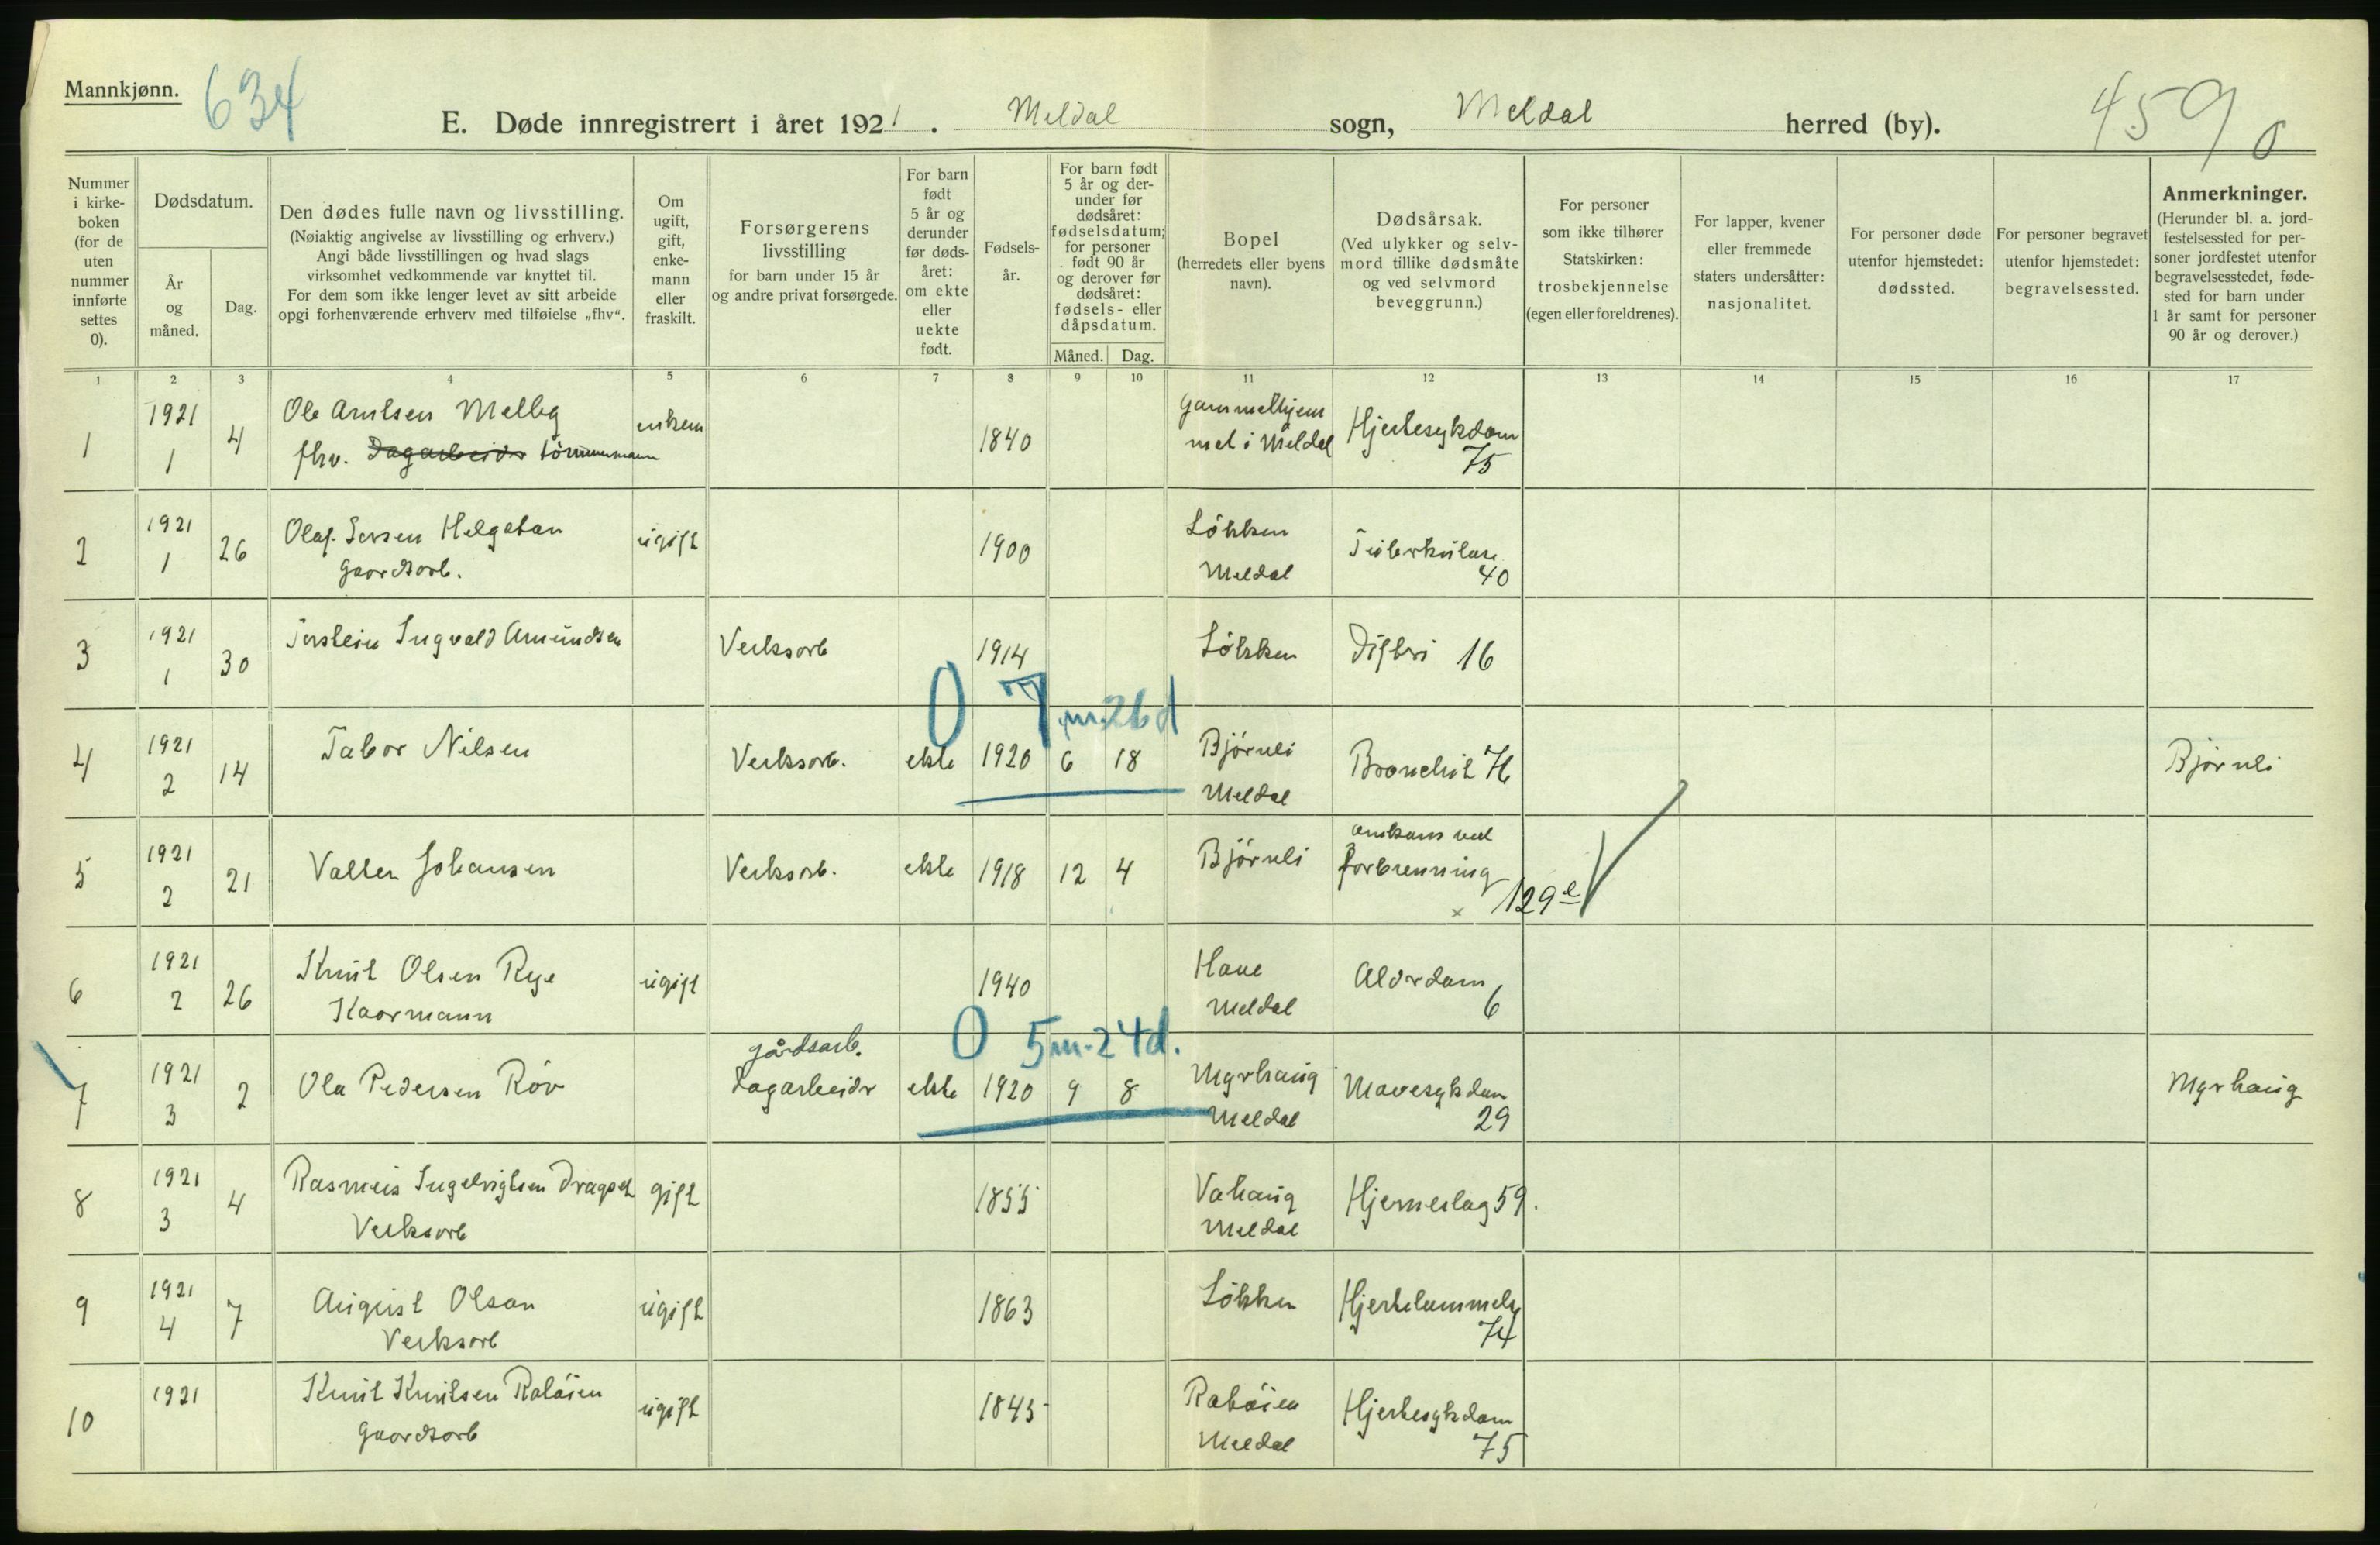 Mannkjønn.
634
E. Døde innregistrert i året 1921. Meldal sogn, Meldal herred (by).
4590
Nummer i kirke-boken (for de uten nummer innførte settes 0).
Dødsdatum.
År og måned.
Dag.
Den dødes fulle navn og livsstilling.
(Nøiaktig angivelse av livsstilling og erhverv.)
Angi både livsstillingen og hvad slags
virksomhet vedkommende var knyttet til.
For dem som ikke lenger levet av sitt arbeide
opgi forhenværende erhverv med tilføielse „fhv“.
Om ugift, gift, enke-mann eller fraskilt.
Forsørgerens livsstilling
for barn under 15 år
og andre privat forsørgede.
For barn født 5 år og derunder før døds-året: om ekte eller uekte født.
Fødsels-år.
For barn født 5 år og der-under før dødsåret: fødselsdatum; for personer født 90 år og derover før dødsåret: fødsels- eller dåpsdatum.
Måned.
Dag.
Bopel
(herredets eller byens navn).
Dødsårsak.
(Ved ulykker og selv-mord tillike dødsmåte og ved selvmord beveggrunn.)
For personer som ikke tilhører Statskirken: trosbekjennelse (egen eller foreldrenes).
For lapper, kvener eller fremmede staters undersåtter: nasjonalitet.
For personer døde utenfor hjemstedet: dødssted.
For personer begravet utenfor hjemstedet: begravelsessted.
Anmerkninger.
(Herunder bl. a. jord-festelsessted for per-soner jordfestet utenfor begravelsesstedet, føde-sted for barn under 1 år samt for personer 90 år og derover.)
1 2 3 4 5 6 7 8 9 10 11 12 13 14 15 16 17
1 1921 1 4 Ole Arntsen Melby enkem 1840 Gammelhjem Hjertesykdom
fhv. Dagarbeider tømmermann met i Meldal 75
2 1921 1 26 Olaf Helgetun ugift 1900 Løkken Tuberkulose
Gaardsarb. Meldal 40
3 1921 1 30 Torstein Ingvald Amundsen Verksarb 1914 Løkken Difteri 16
0 7 m. 26 d
4 1921 2 14 Tabor Nilsen Verksarb. ekte 1920 6 18 Bjørnli Bronchit 76 Bjørnli
Meldal
5 1921 2 21 Valter Johansen Verksarb. ekte 1918 12 4 Bjørnli omkom ved
forbrenning
x 129 e
6 1921 2 26 Knut Olsen Rye ugift 1940 Alderdom
Kaarmann Meldal 6
0 5 m. 24 d.
gårdsarb.
7 1921 3 2 Ola Pedersen Røv Dagarbeider ekte 1920 9 8 Myrhaug Mavesykdom Myrhaug
Meldal 29
8 1921 3 4 Rasmus Ingebrigtsen Dragset gift 1855 Vahaug Hjerneslag 59.
Verksarb Meldal
9 1921 4 7 August Olsen ugift 1863 Løkken Hjertelammelse
Verksarb 74
10 1921 Knut Knutsen Rabøien ugift 1845 Rabøien Hjertesykdom
Gaardsarb Meldal 75